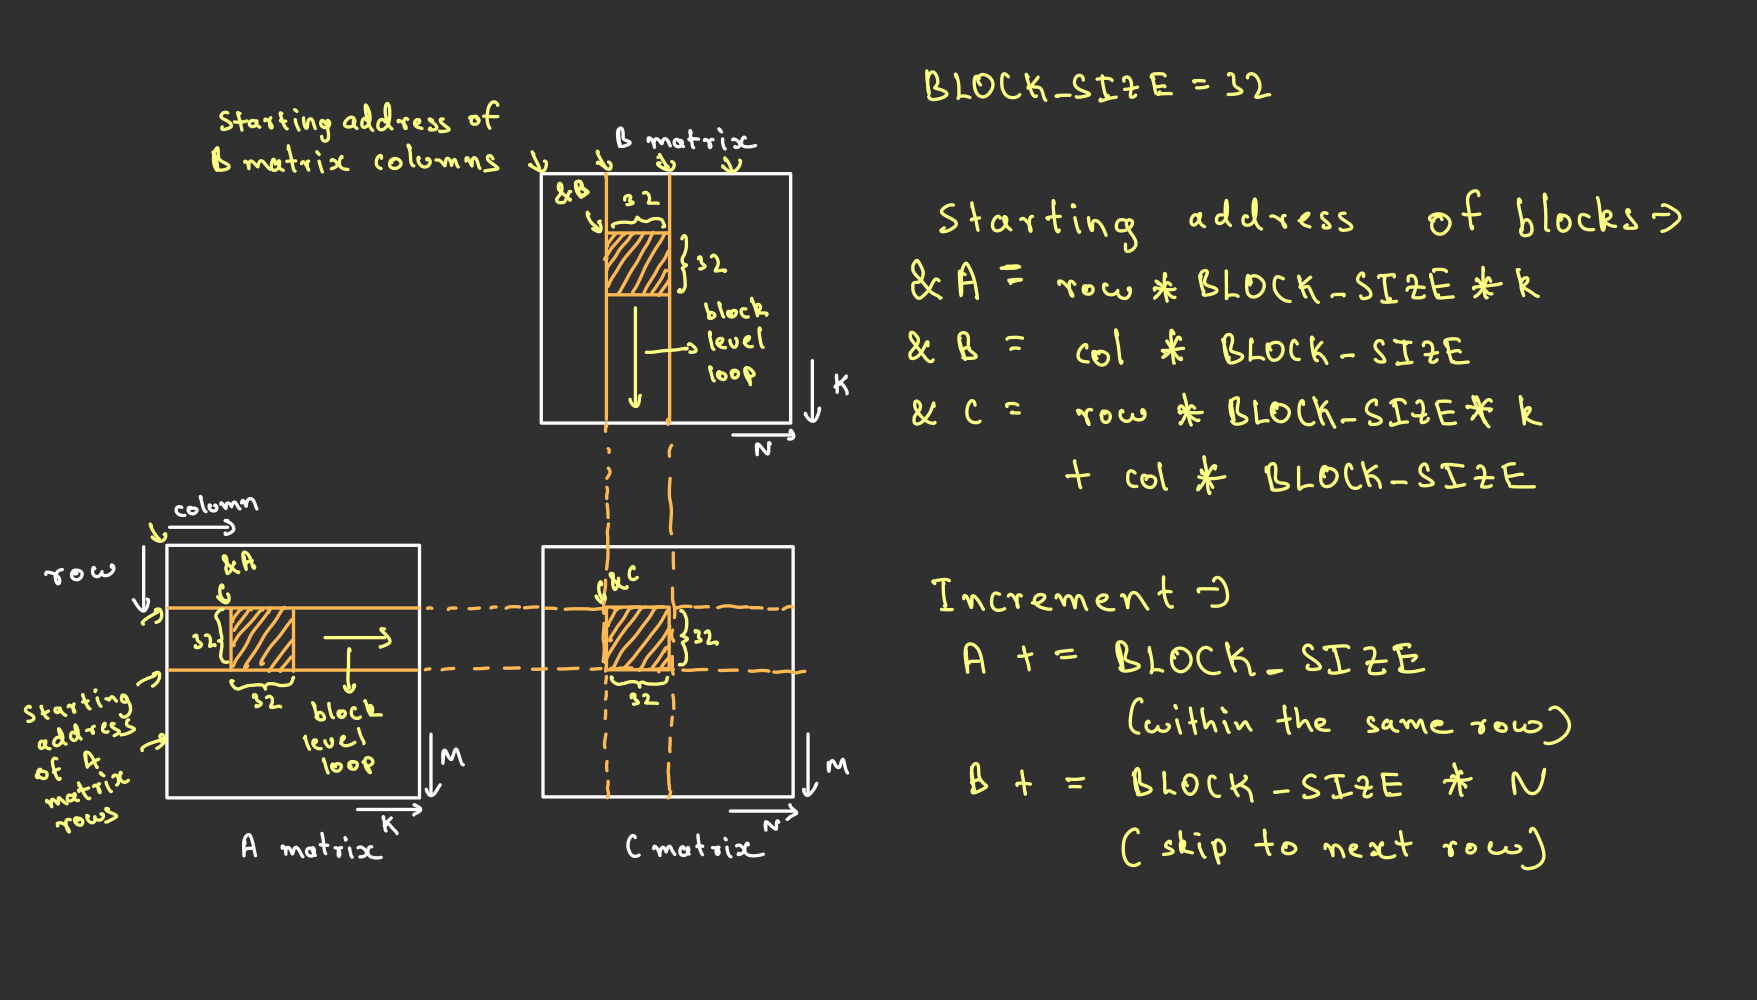 Starting address of
B matrix columns
B matrix
&B
32
32
block
level
loop
K
N
column
row
&A
32
32
block
level
loop
Starting
address
of A
matrix
rows
M
K
A matrix
&C
32
32
M
N
C matrix
BLOCK_SIZE = 32
Starting address of blocks →
& A = row * BLOCK_SIZE * k
& B = col * BLOCK_SIZE
& C = row * BLOCK_SIZE * k
+ col * BLOCK_SIZE
Increment →
A += BLOCK_SIZE
(within the same row)
B += BLOCK_SIZE * N
(skip to next row)